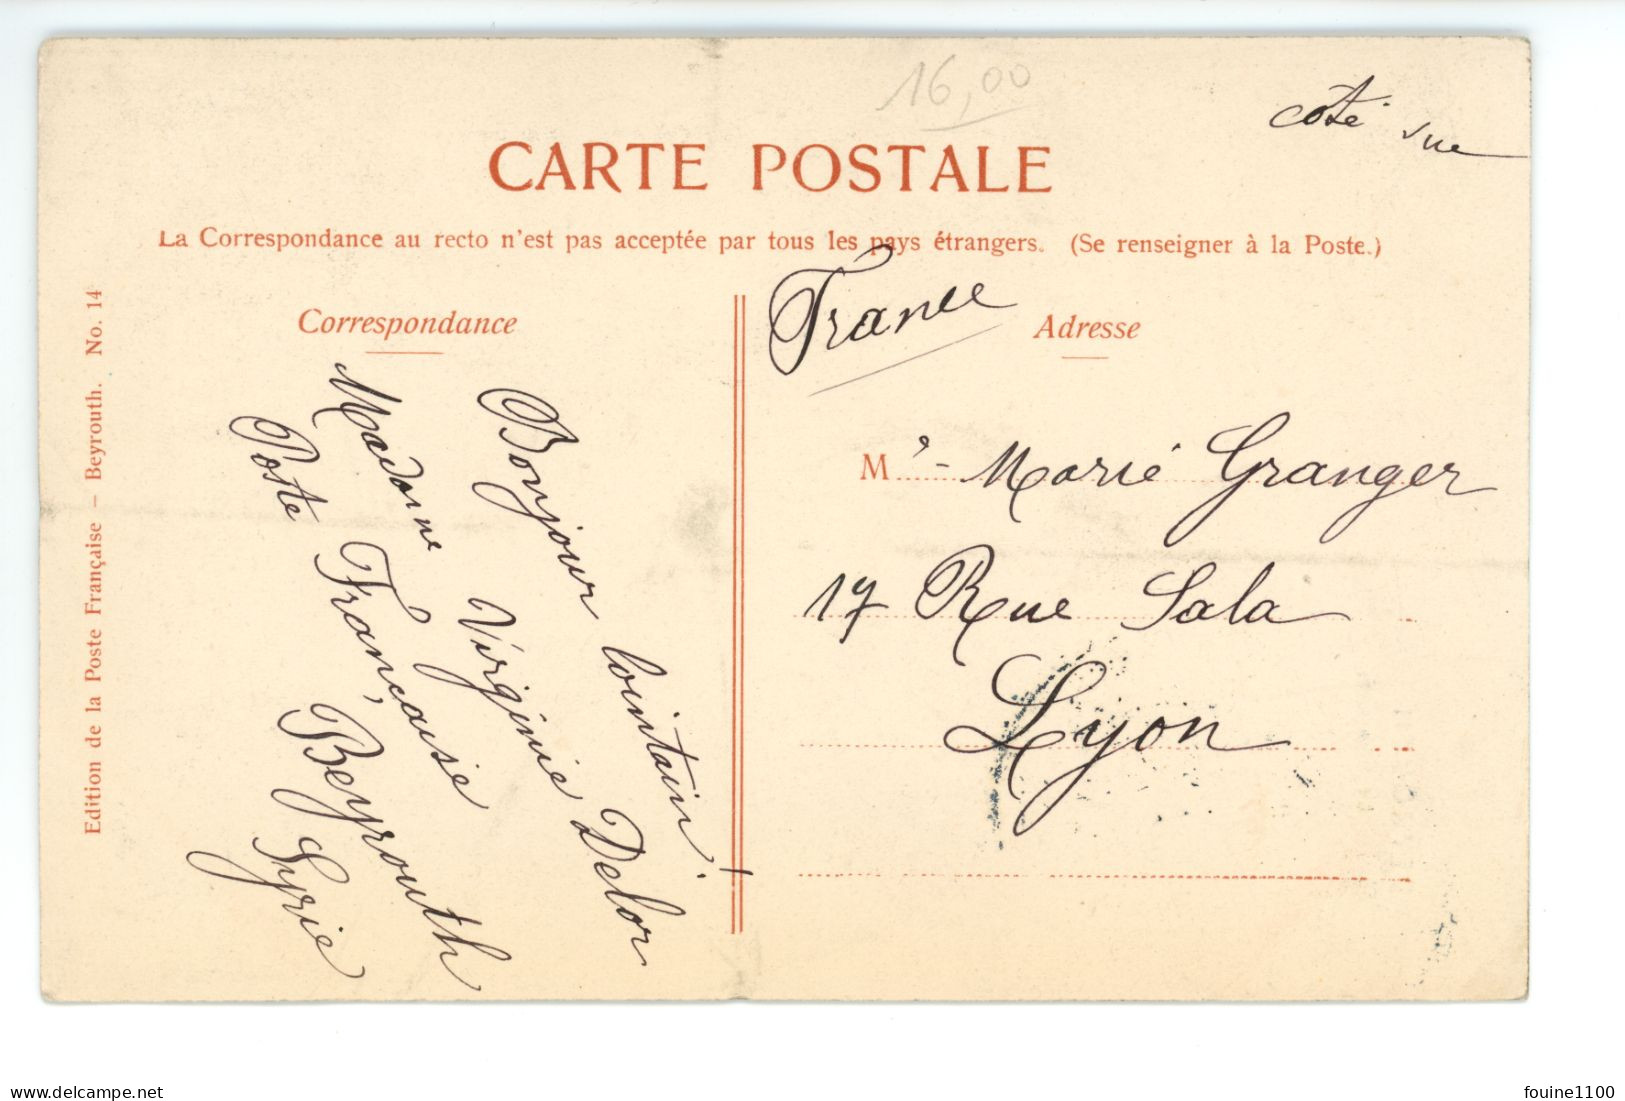 16,00
côté vue
CARTE POSTALE
La Correspondance au recto n'est pas acceptée par tous les pays étrangers. (Se renseigner à la Poste.)
Edition de la Poste Française – Beyrouth. No. 14
Correspondance
Bonjour lointain!
Madame Virginie Delor
Poste Française
Beyrouth
Syrie
France
Adresse
M e - Marie Granger
17 Rue Sala
Lyon
delcampe.net
fouine1100